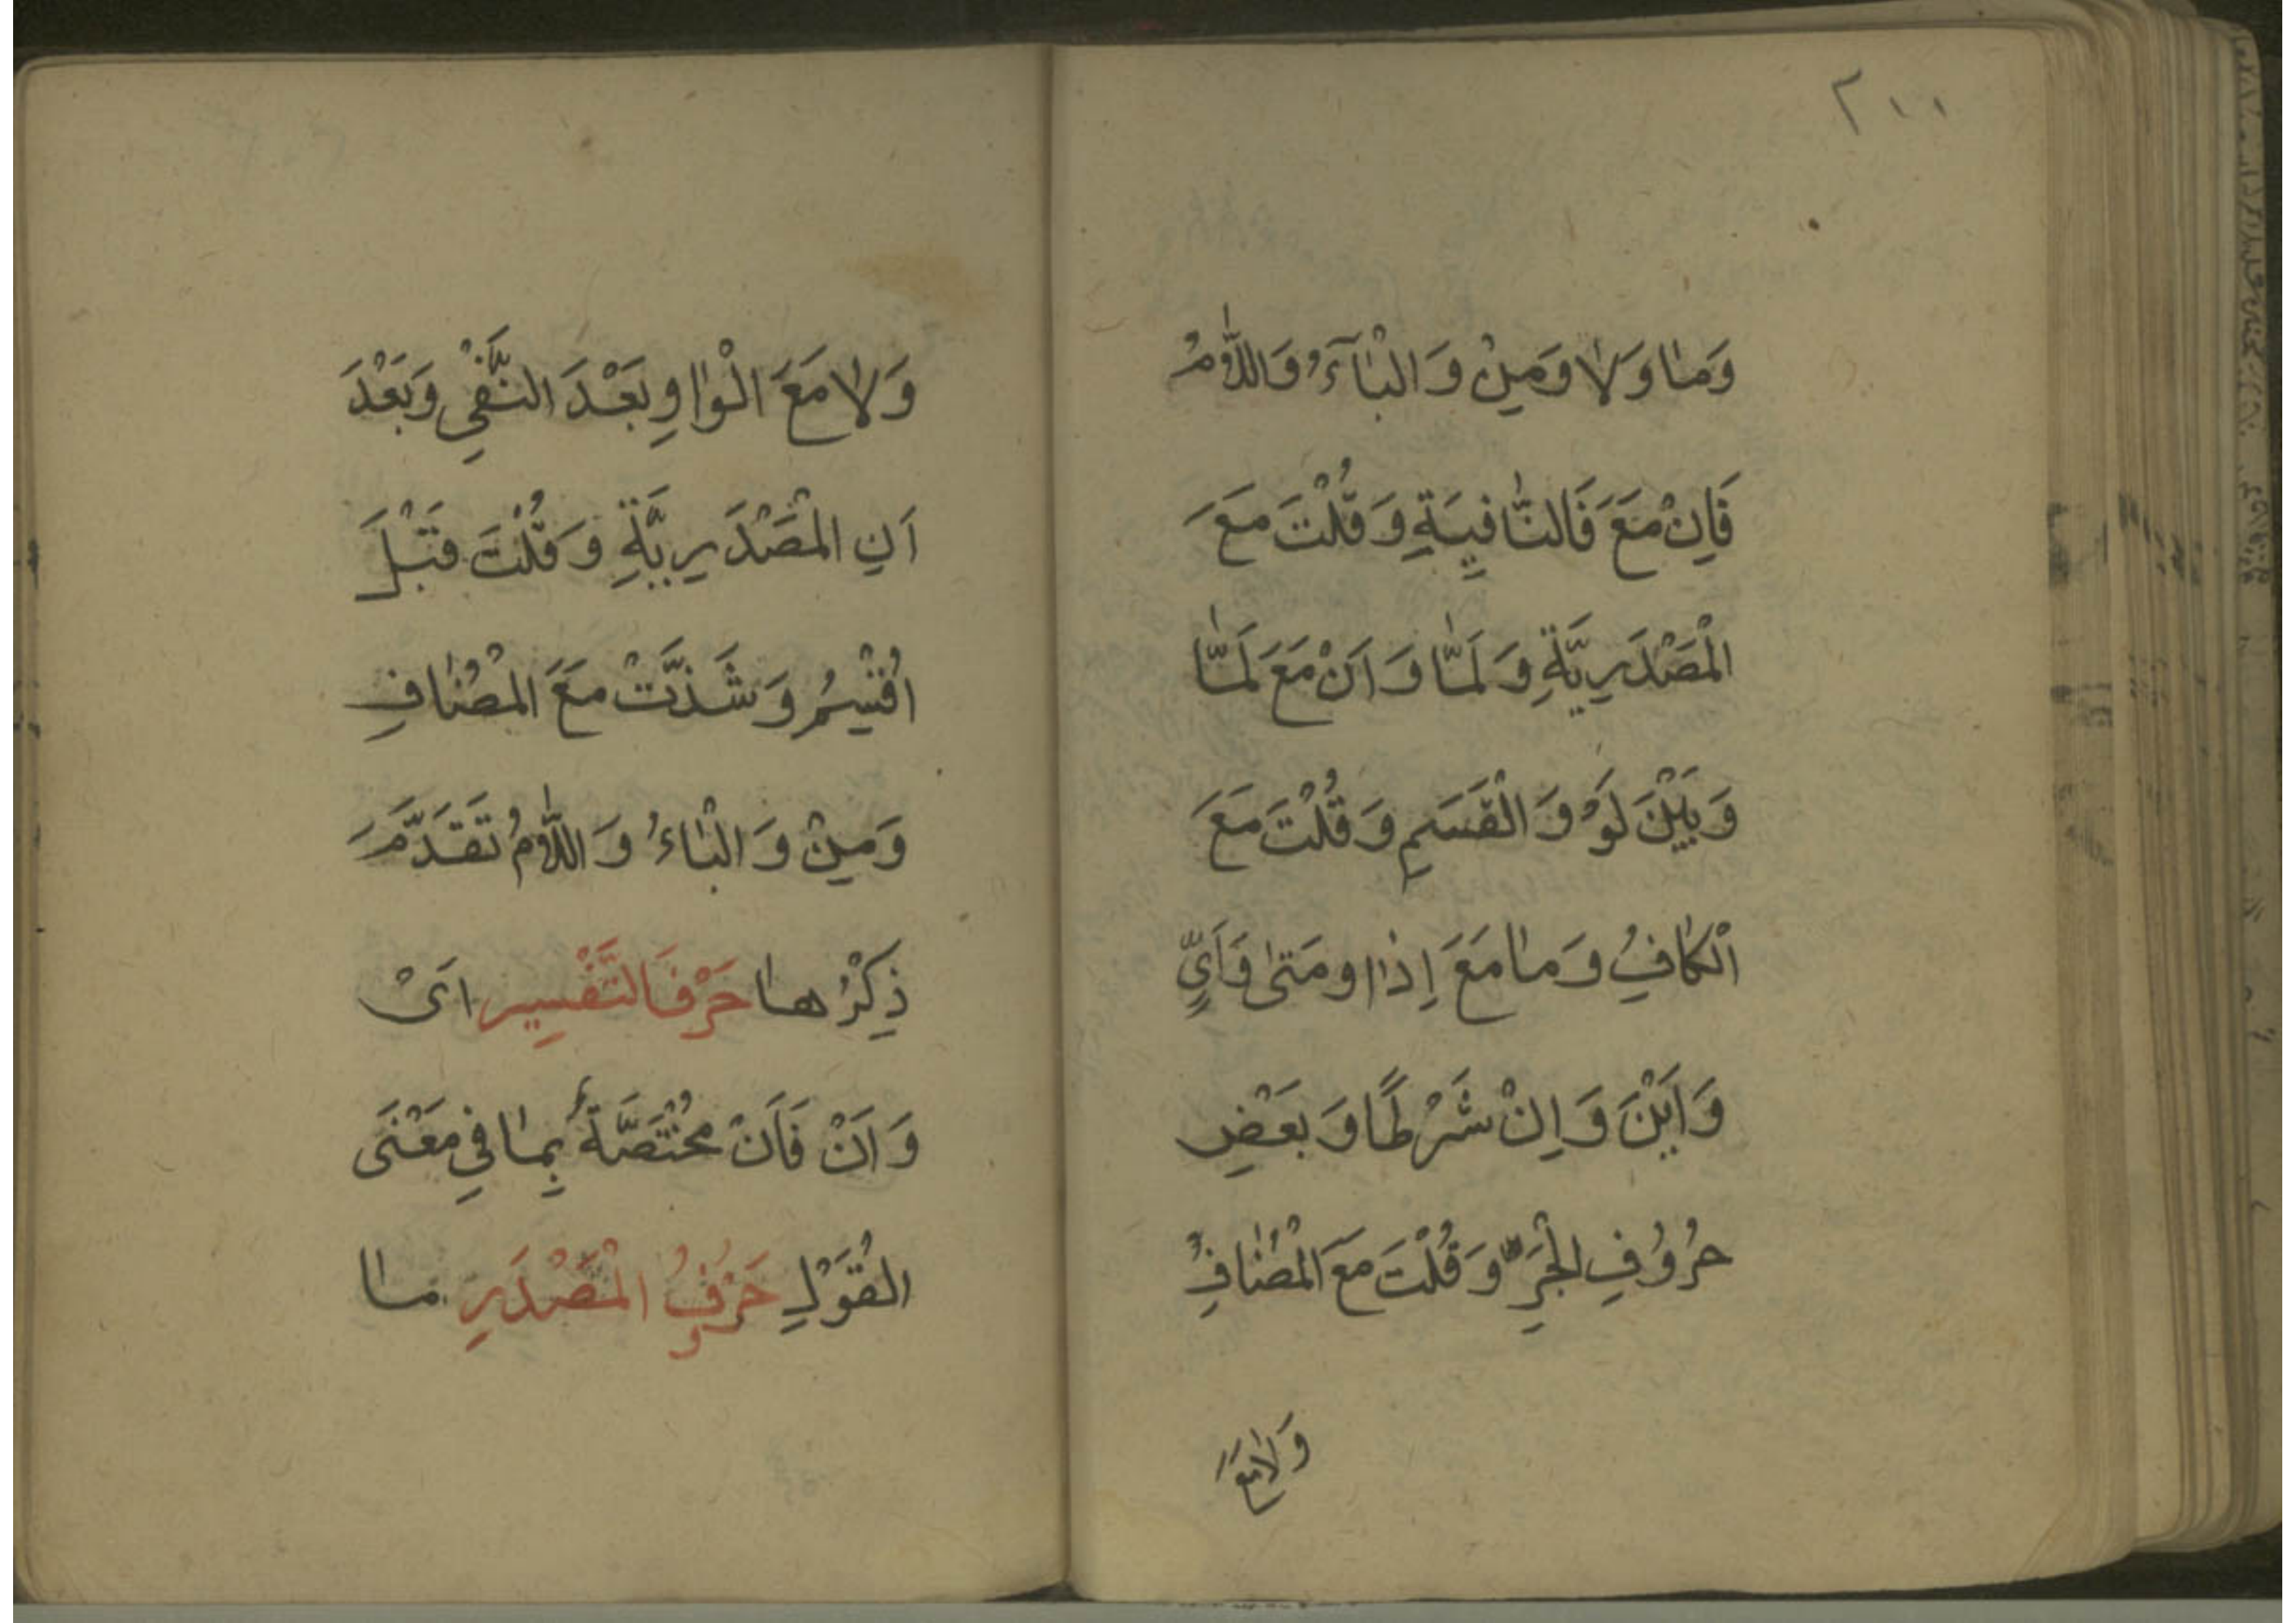 ٢١١
وَمٰا وَلاٰ وَمِنْ وَالْبٰآءُ وَاللّٰامُ
فَاِنْ مَعَ فَالنّٰافِيَةِ وَقُلْتَ مَعَ
الْمَصْدَرِيَّةِ وَلَمّٰا وَاَنْ مَعَ لَمّٰا
وَبَيْنَ لَوْ وَالْقَسَمِ وَقُلْتَ مَعَ
الْكٰافِ وَمٰا مَعَ اِذٰا وَمَتىٰ وَاَيٍّ
وَاَيْنَ وَاِنْ شَرْطًا وَبَعْضِ
حُرُوُفِ الْجَرِّ وَقُلْتَ مَعَ الْمُضٰافِ
وَلاٰ مَعَ
وَلاٰ مَعَ الْوٰاوِ بَعْدَ النَّفْيِ وَبَعْدَ
اَنِ الْمَصْدَرِيَّةِ وَقُلْتَ قَبْلَ
اُقْسِمُ وَشَذَّتْ مَعَ الْمُضٰافِ
وَمِنْ وَالْبٰاءُ وَاللّٰامُ تَقَدَّمَ
ذِكْرُهٰا حَرْفَا التَّفْسِيرِ اَىْ
وَاَنْ فَاَنْ مُخْتَصَّةٌ بِمٰا فِي مَعْنَى
الْقَوْلِ حَرُوُفُ الْمَصْدَرِ مٰا